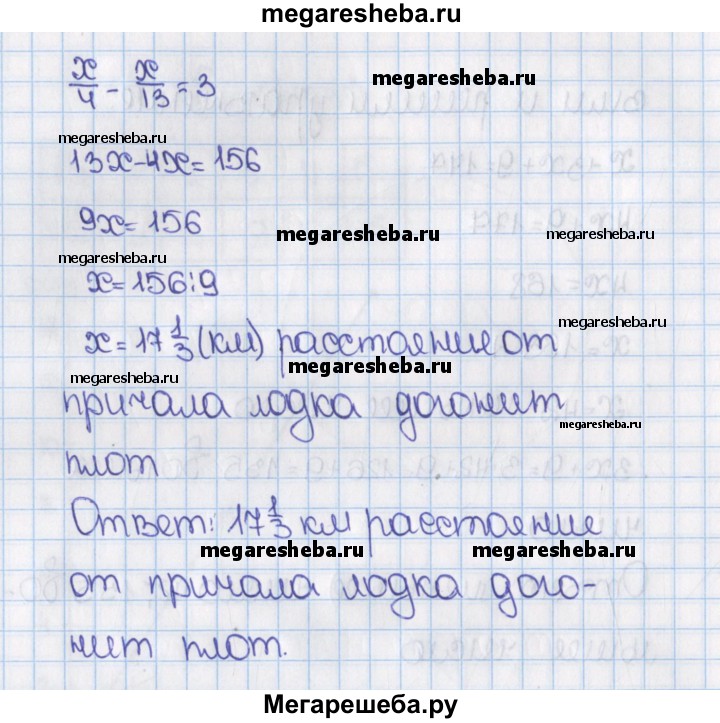 megaresheba.ru
x/4 - x/13 = 3
megaresheba.ru
megaresheba.ru
13x-4x=156
9x=156
megaresheba.ru
megaresheba.ru
megaresheba.ru
x=156:9
megaresheba.ru
x=17 1/3 (км) расстояние от
megaresheba.ru
megaresheba.ru
причала лодка догонит
megaresheba.ru
плот
Ответ: 17 1/3 км расстояние
megaresheba.ru
megaresheba.ru
от причала лодка дого-
нит плот.
Мегарешеба.ру